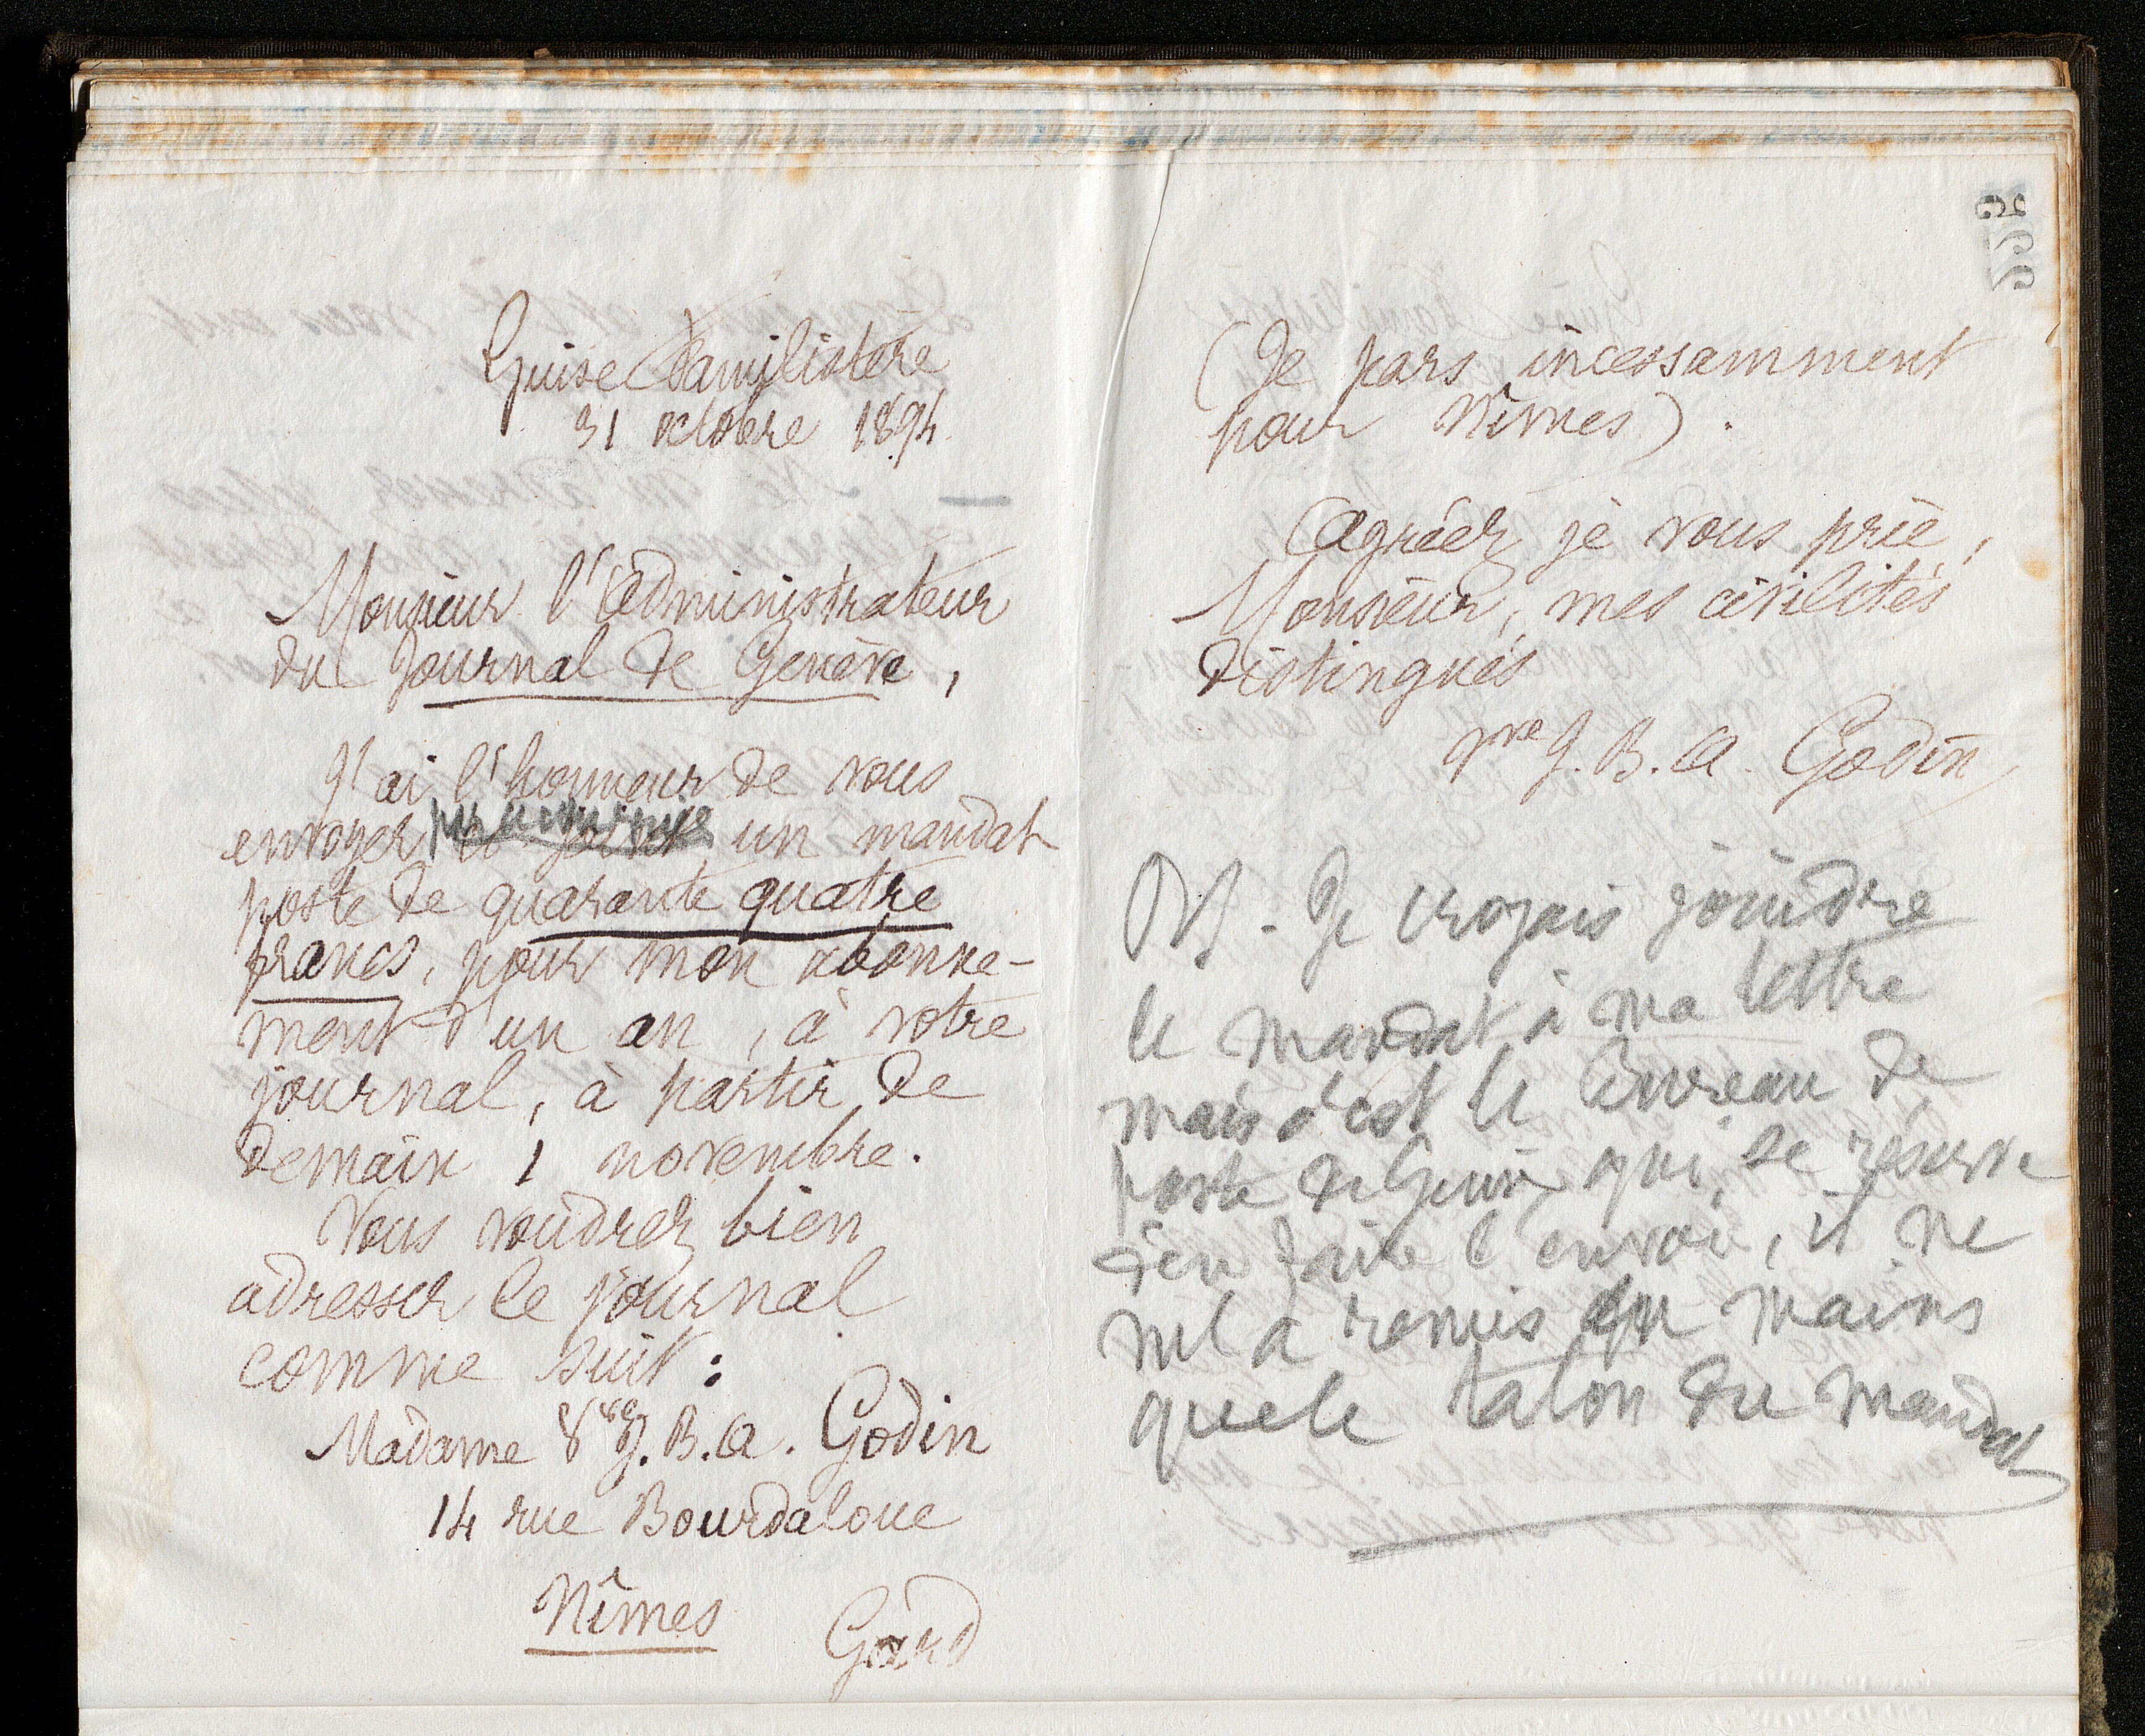 Guise Familistère
31 octobre 1894.
Monsieur l'Administrateur
du Journal de Genève,
J'ai l'honneur de vous
envoyer un mandat
poste de quarante quatre
francs, pour mon abonne-
ment d'un an, à votre
journal, à partir de
demain 1 novembre.
Vous voudrez bien
adresser le journal
comme suit :
Madame Vve J. B. A. Godin
14 rue Bourdaloue
Nîmes Gard
(Je pars incessamment
pour Nîmes).
Agréez je vous prie,
Monsieur, mes civilités
distingués
Vve J. B. A. Godin
Je croyais joindre
le mandat à ma lettre
mais c'est le Bureau de
poste de Guise qui se réserve
d'en faire l'envoi, il ne
m'a remis en mains
que le talon du mandat